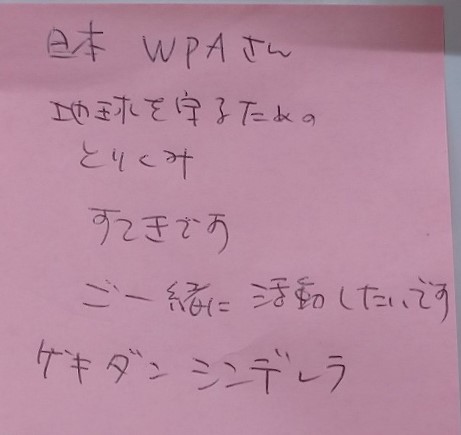 日本 WPAさん
地球を守るための
とりくみ
すてきです
ご一緒に活動したいです
ゲキダン シンデレラ